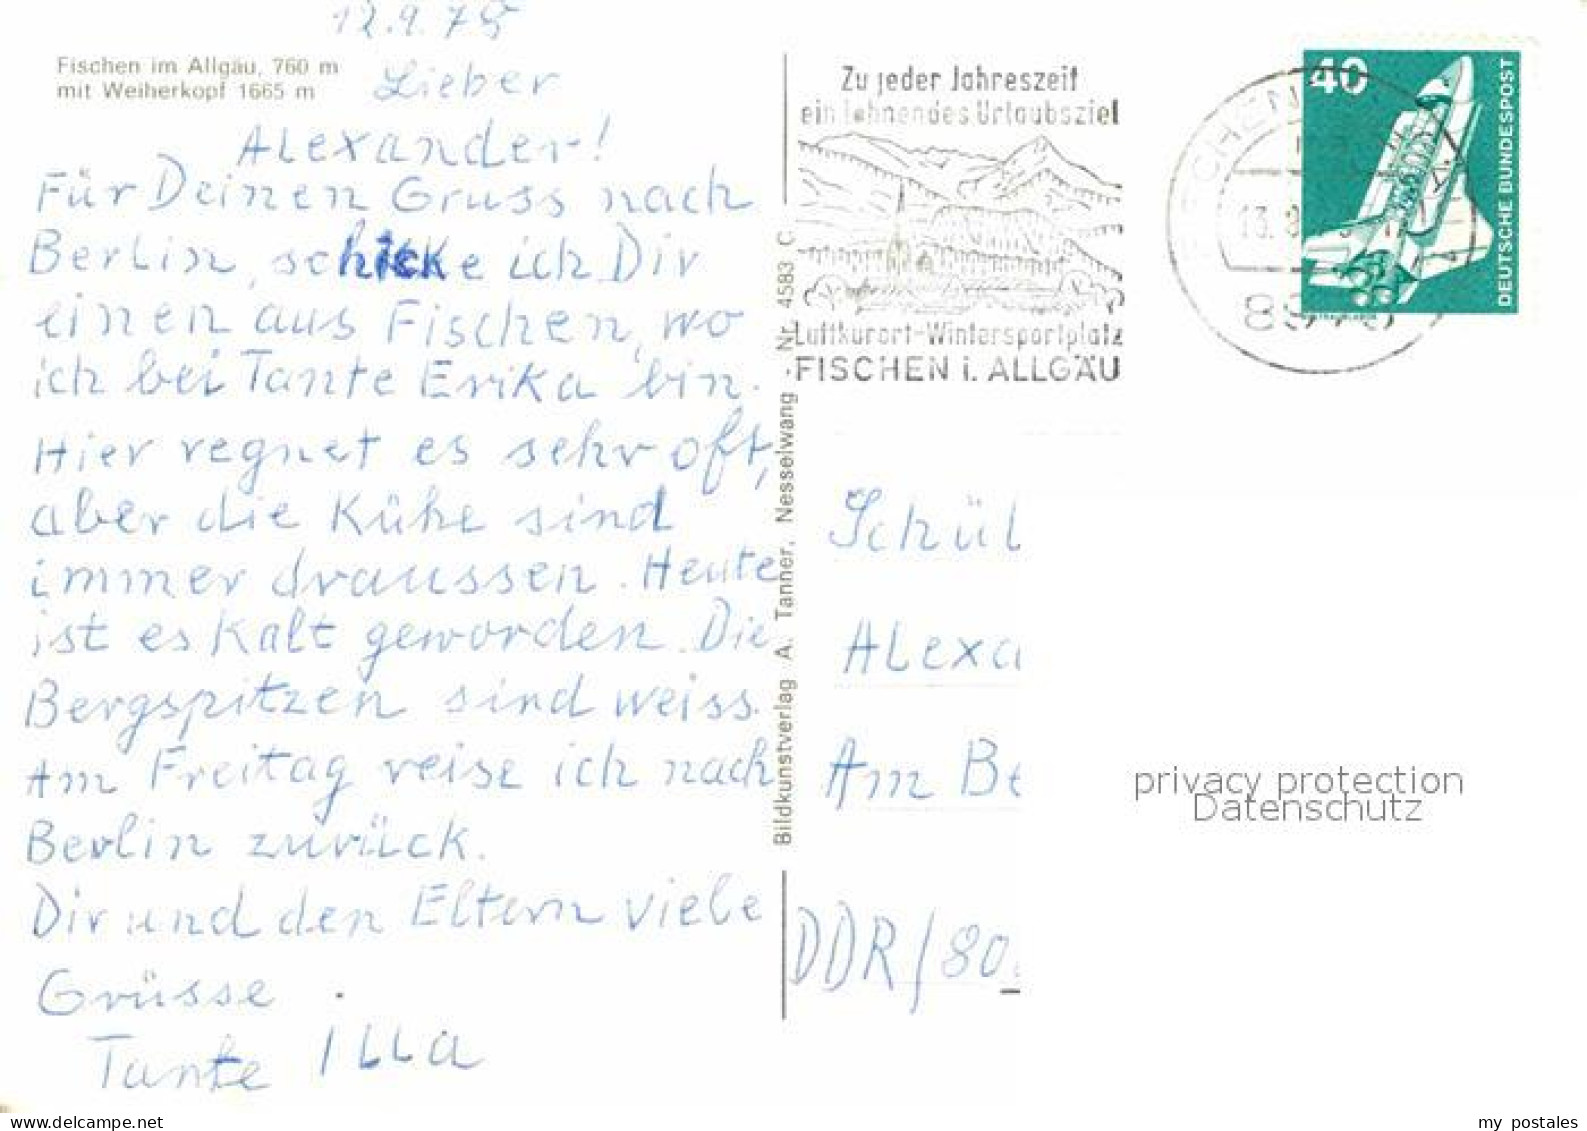 12.9.78
Fischen im Allgäu, 760 m
mit Weiherkopf 1665 m
Lieber
Alexander!
Für Deinen Gruss nach
Berlin, schicke ich Dir
einen aus Fischen, wo
ich bei Tante Erika bin.
Hier regnet es sehr oft,
aber die Kühe sind
immer draussen. Heute
ist es kalt geworden. Die
Bergspitzen sind weiss.
Am Freitag reise ich nach
Berlin zurück.
Dir und den Eltern viele
Grüsse.
Tante Illa
Bildkunstverlag A. Tanner, Nesselwang · Nr. 4583 C
Zu jeder Jahreszeit
ein lohnendes Urlaubsziel
Luftkurort-Wintersportplatz
FISCHEN i. ALLGÄU
40
DEUTSCHE BUNDESPOST
Schül
Alexa
Am Be
DDR/80
privacy protection
Datenschutz
my postales
www.delcampe.net